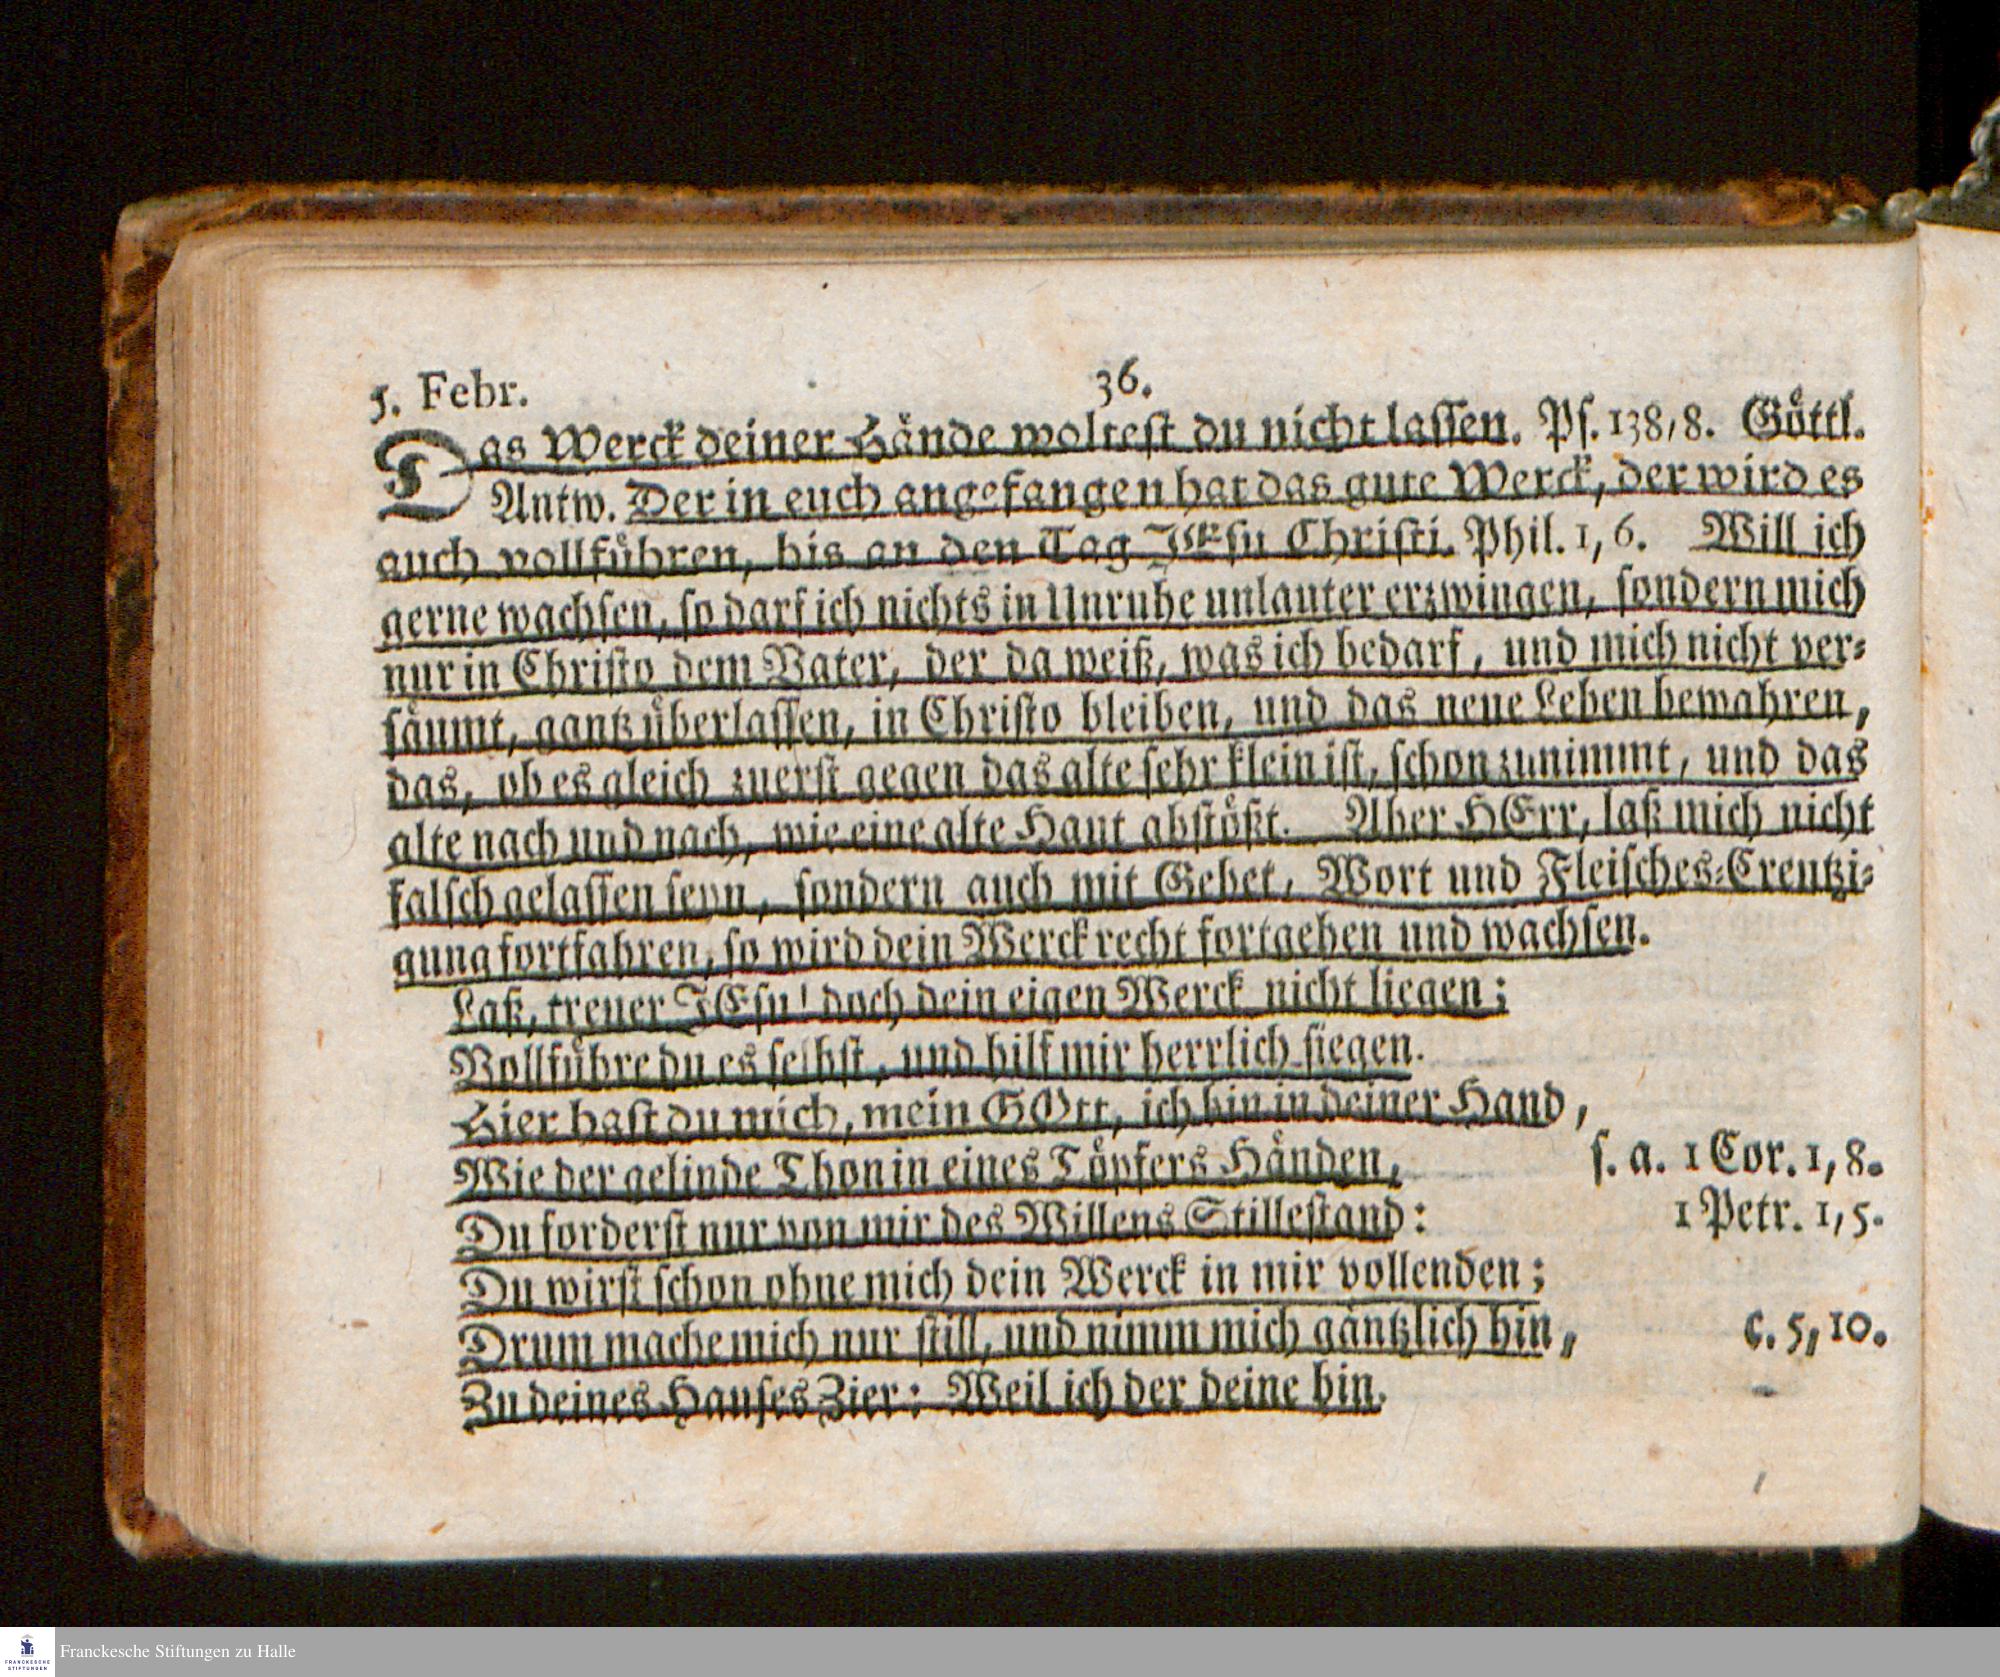 5. Febr. 36.
Das Werck deiner Hände woltest du nicht lassen. Ps. 138, 8. Göttl.
Antw. Der in euch angefangen hat das gute Werck, der wird es
auch vollführen, bis an den Tag JEsu Christi. Phil. 1, 6. Will ich
gerne wachsen, so darf ich nichts in Unruhe unlauter erzwingen, sondern mich
nur in Christo dem Vater, der da weiß, was ich bedarf, und mich nicht ver-
säumt, gantz überlassen, in Christo bleiben, und das neue Leben bewahren,
das, ob es gleich zuerst gegen das alte sehr klein ist, schon zunimmt, und das
alte nach und nach, wie eine alte Haut abstößt. Aber HErr, laß mich nicht
falsch gelassen seyn, sondern auch mit Gebet, Wort und Fleisches-Creutzi-
gung fortfahren, so wird dein Werck recht fortgehen und wachsen.
Laß, treuer JEsu! doch dein eigen Werck nicht liegen;
Vollführe du es selbst, und hilf mir herrlich siegen.
Hier hast du mich, mein GOtt, ich bin in deiner Hand,
Wie der gelinde Thon in eines Töpfers Händen, s. a. 1 Cor. 1, 8.
Du forderst nur von mir des Willens Stillestand: 1 Petr. 1, 5.
Du wirst schon ohne mich dein Werck in mir vollenden;
Drum mache mich nur still, und nimm mich gäntzlich hin, c. 5, 10.
Zu deines Hauses Zier: Weil ich der deine bin.
FRANCKESCHE
STIFTUNGEN
Franckesche Stiftungen zu Halle